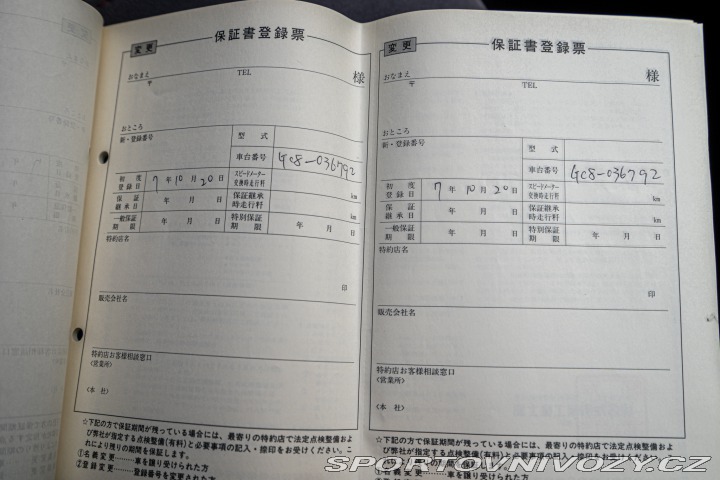 変更
保証書登録票
おなまえ
〒
TEL
様
おところ
新・登録番号
型 式
車台番号
GC8-036792
初度登録日
7年10月20日
スピードメーター交換時走行料
km
保証継承日
年 月 日
保証継承時走行料
km
一般保証期限
年 月 日
特別保証期限
年 月 日
特約店名
印
販売会社名
特約店お客様相談窓口
〈営業所〉
〈本 社〉
☆下記の方で保証期間が残っている場合には、最寄りの特約店で法定点検整備およ
び弊社が指定する点検整備(有料)と必要事項の記入・捺印をお受けください。こ
れにより残りの期間を保証します。
①名義変更………車を譲り受けられた方
②登録変更………登録番号を変更された方
変更
保証書登録票
おなまえ
〒
TEL
様
おところ
新・登録番号
型 式
車台番号
GC8-036792
初度登録日
7年10月20日
スピードメーター交換時走行料
km
保証継承日
年 月 日
保証継承時走行料
km
一般保証期限
年 月 日
特別保証期限
年 月 日
特約店名
印
販売会社名
特約店お客様相談窓口
〈営業所〉
〈本 社〉
☆下記の方で保証期間が残っている場合には、最寄りの特約店で法定点検整備およ
び弊社が指定する点検整備(有料)と必要事項の記入・捺印をお受けください。こ
SPORTOVNIVOZY.CZ